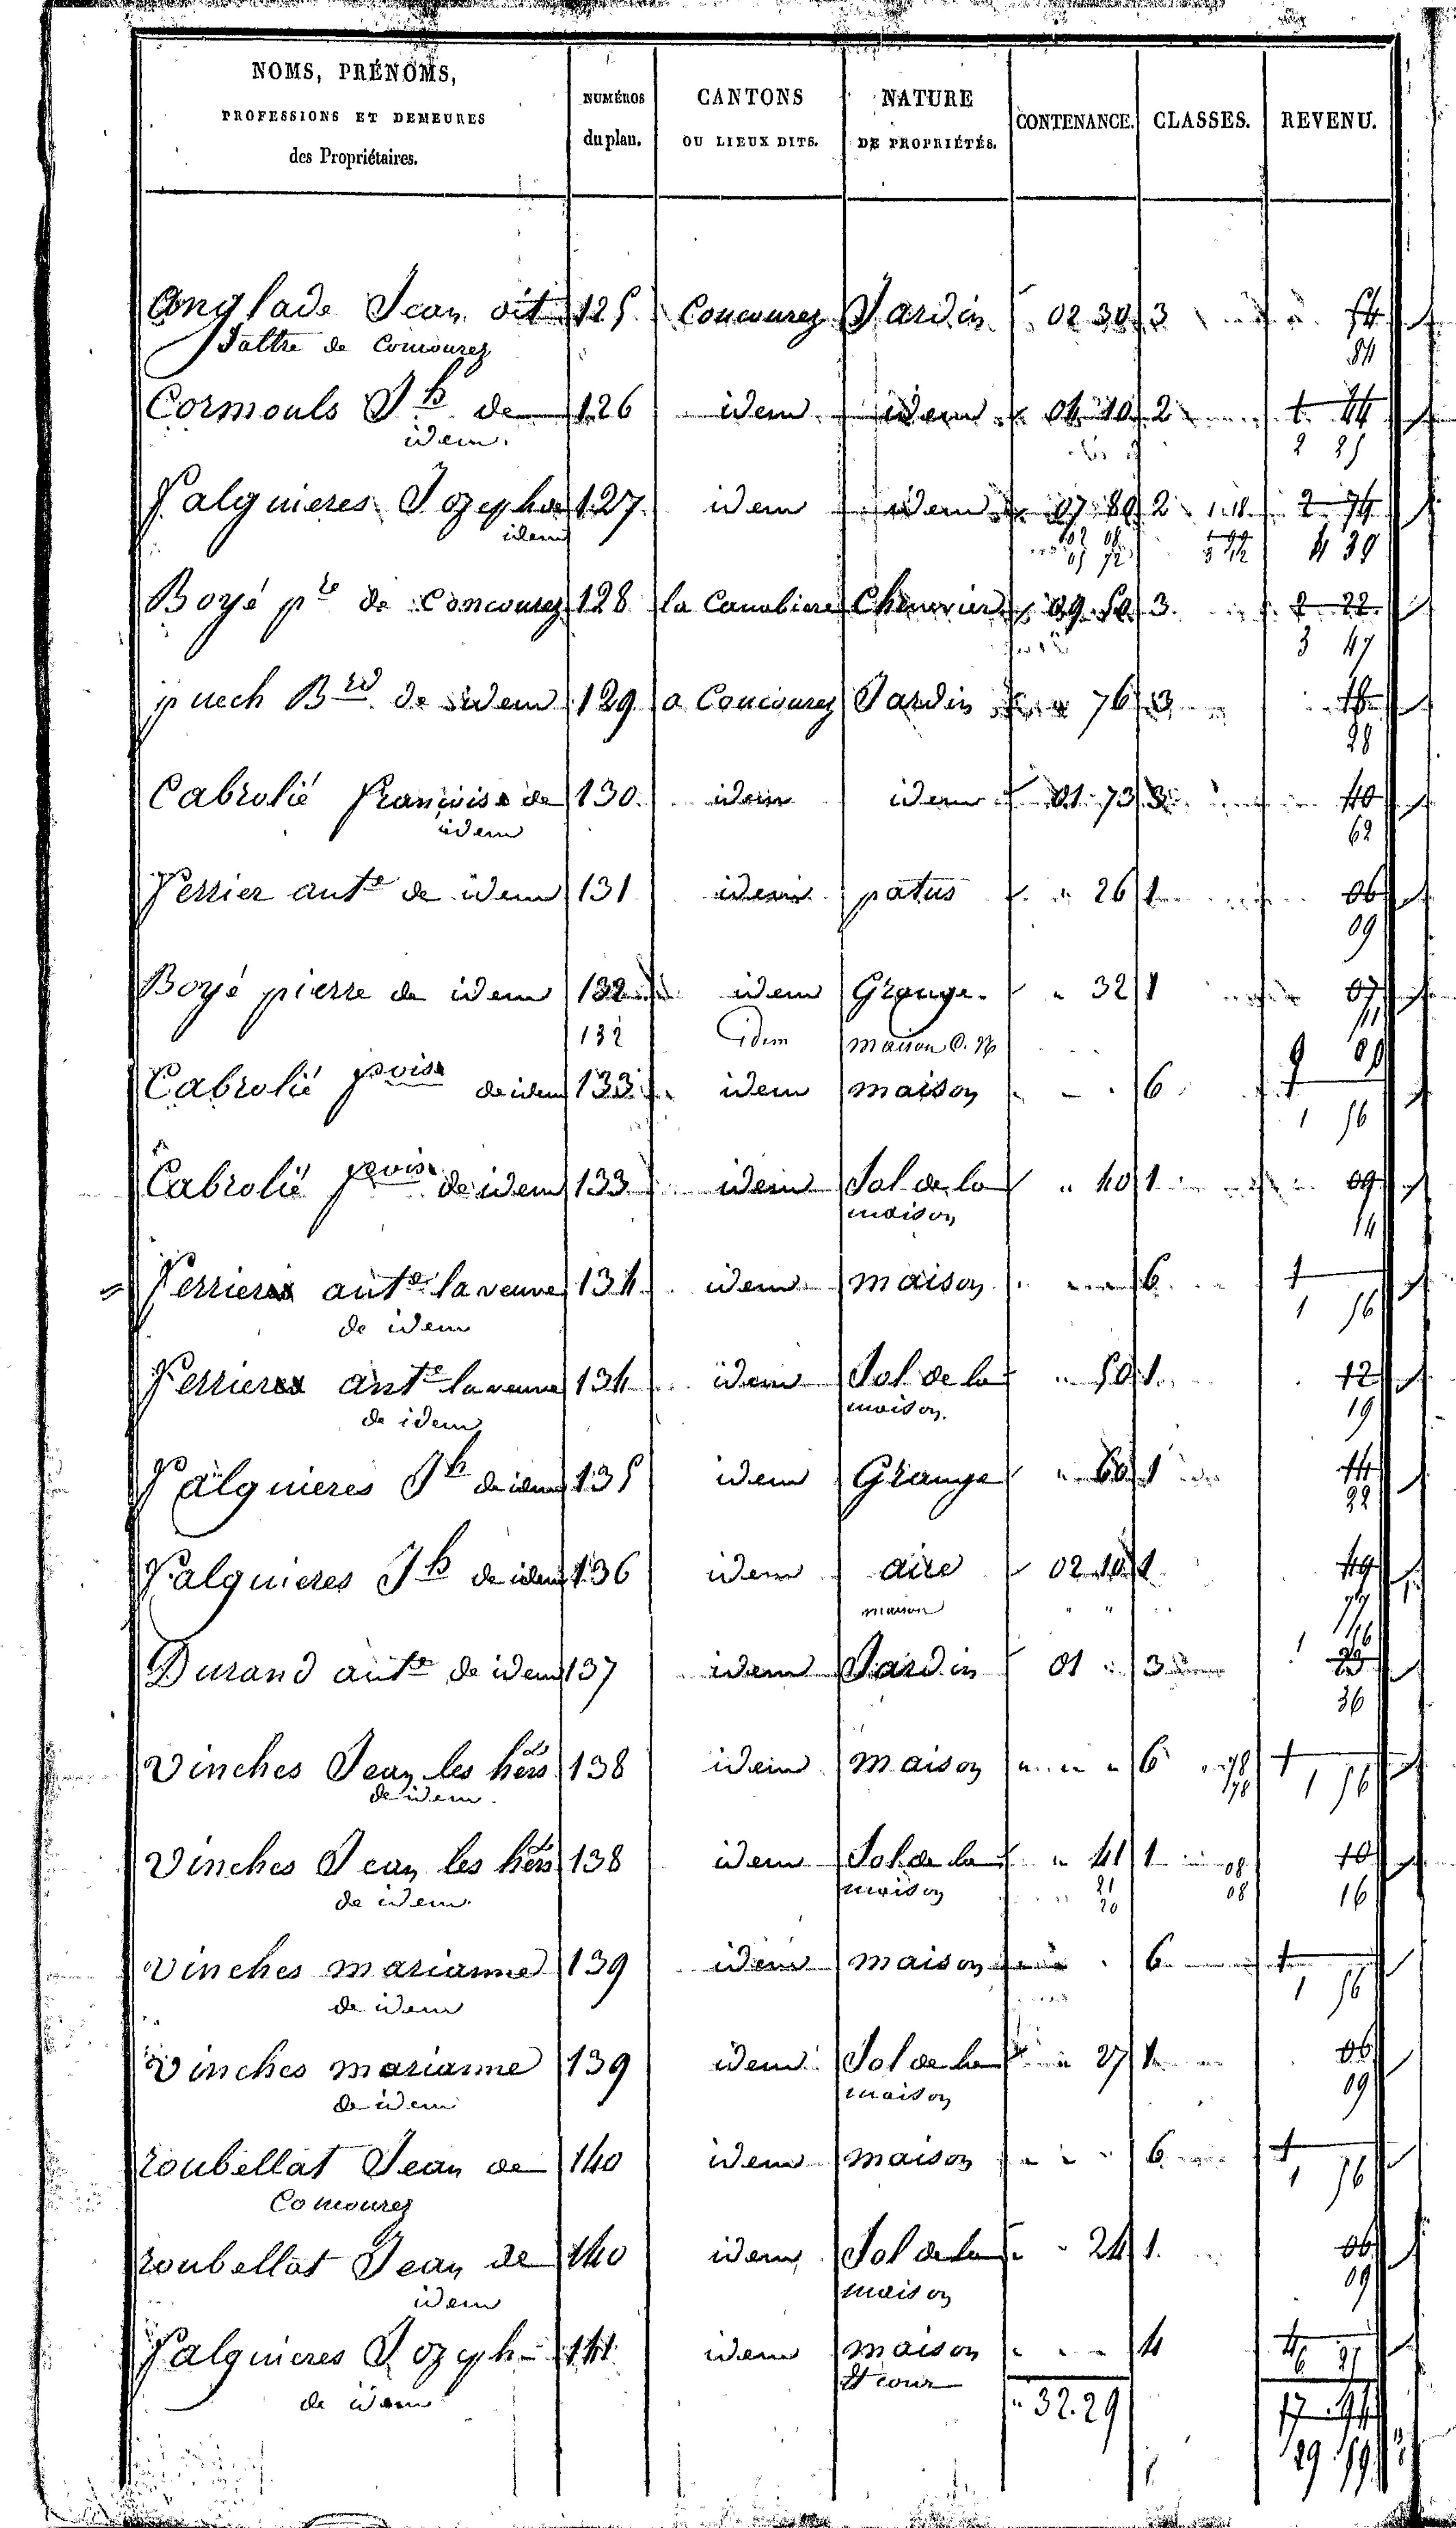 NOMS, PRÉNOMS,
PROFESSIONS ET DEMEURES
des Propriétaires.
NUMÉROS
du plan.
CANTONS
OU LIEUX DITS.
NATURE
DE PROPRIÉTÉS.
CONTENANCE. CLASSES. REVENU.
Anglade Jean dit 125 Concourez Jardin 02 30 3 54
de Concourez 84
Cormouls Jh de 126 idem idem 04 10 2 1 44
idem. 2 25
Falguieres Jozeph de 127 idem idem 07 80 2 1.18 2 74
idem 02 08 3 12 4 39
05 72
Boyé pre de Concourez 128 la Canabiere Chenevier 09 50 3 2 22
3 47
puech Brd de idem 129 a Concourez Jardin 76 3 18
28
Cabrolié françoise de 130 idem idem 01 73 3 40
idem 62
Verrier ante de idem 131 idem patus 26 1 06
09
Boyé pierre de idem 132 idem Grange 32 1 07
11
132 idem maison
Cabrolié foise de idem 133 idem maison 6 1
1 56
Cabrolié foise de idem 133 idem Sol de la 40 1 09
maison 14
Verrier ante la veuve 134 idem maison 6 1
de idem 1 56
Verrier ante la veuve 134 idem Sol de la 50 1 12
de idem maison 19
Falguieres Jh de idem 135 idem Grange 60 1 14
22
Falguieres Jh de idem 136 idem aire 02 10 1 49
maison 77
Durand ante de idem 137 idem Jardin 01 3 23
36
Vinches Jean les hers 138 idem maison 6 78 1
de idem 78 1 56
Vinches Jean les hers 138 idem Sol de la 41 1 08 10
de idem maison 21 08 16
20
Vinches marianne 139 idem maison 6 1
de idem 1 56
Vinches marianne 139 idem Sol de la 27 1 06
de idem maison 09
roubellat Jean de 140 idem maison 6 1
Concourez 1 56
roubellat Jean de 140 idem Sol de la 24 1 06
idem maison 09
Falguieres Jozeph 141 idem maison 4 4
de idem et cour 6 25
32.29 17
29 59